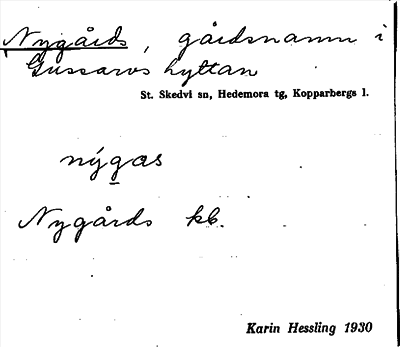 Nygårds, gårdsnamn i
Gussarvshyttan
St. Skedvi sn, Hedemora tg, Kopparbergs l.
nýgas
Nygårds kb.
Karin Hessling 1930